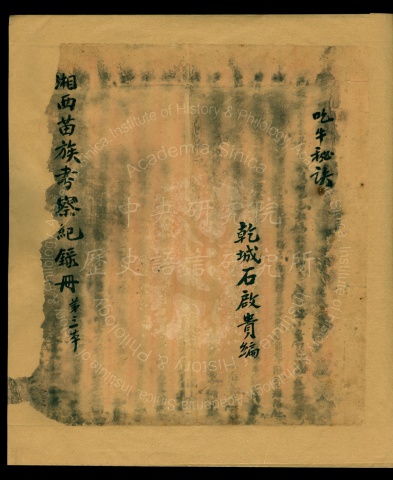 吃牛秘訣
乾城石啟貴編
湘西苗族考察紀錄冊 第三本
中央研究院
歷史語言研究所
Academia Sinica
Institute of History & Philology